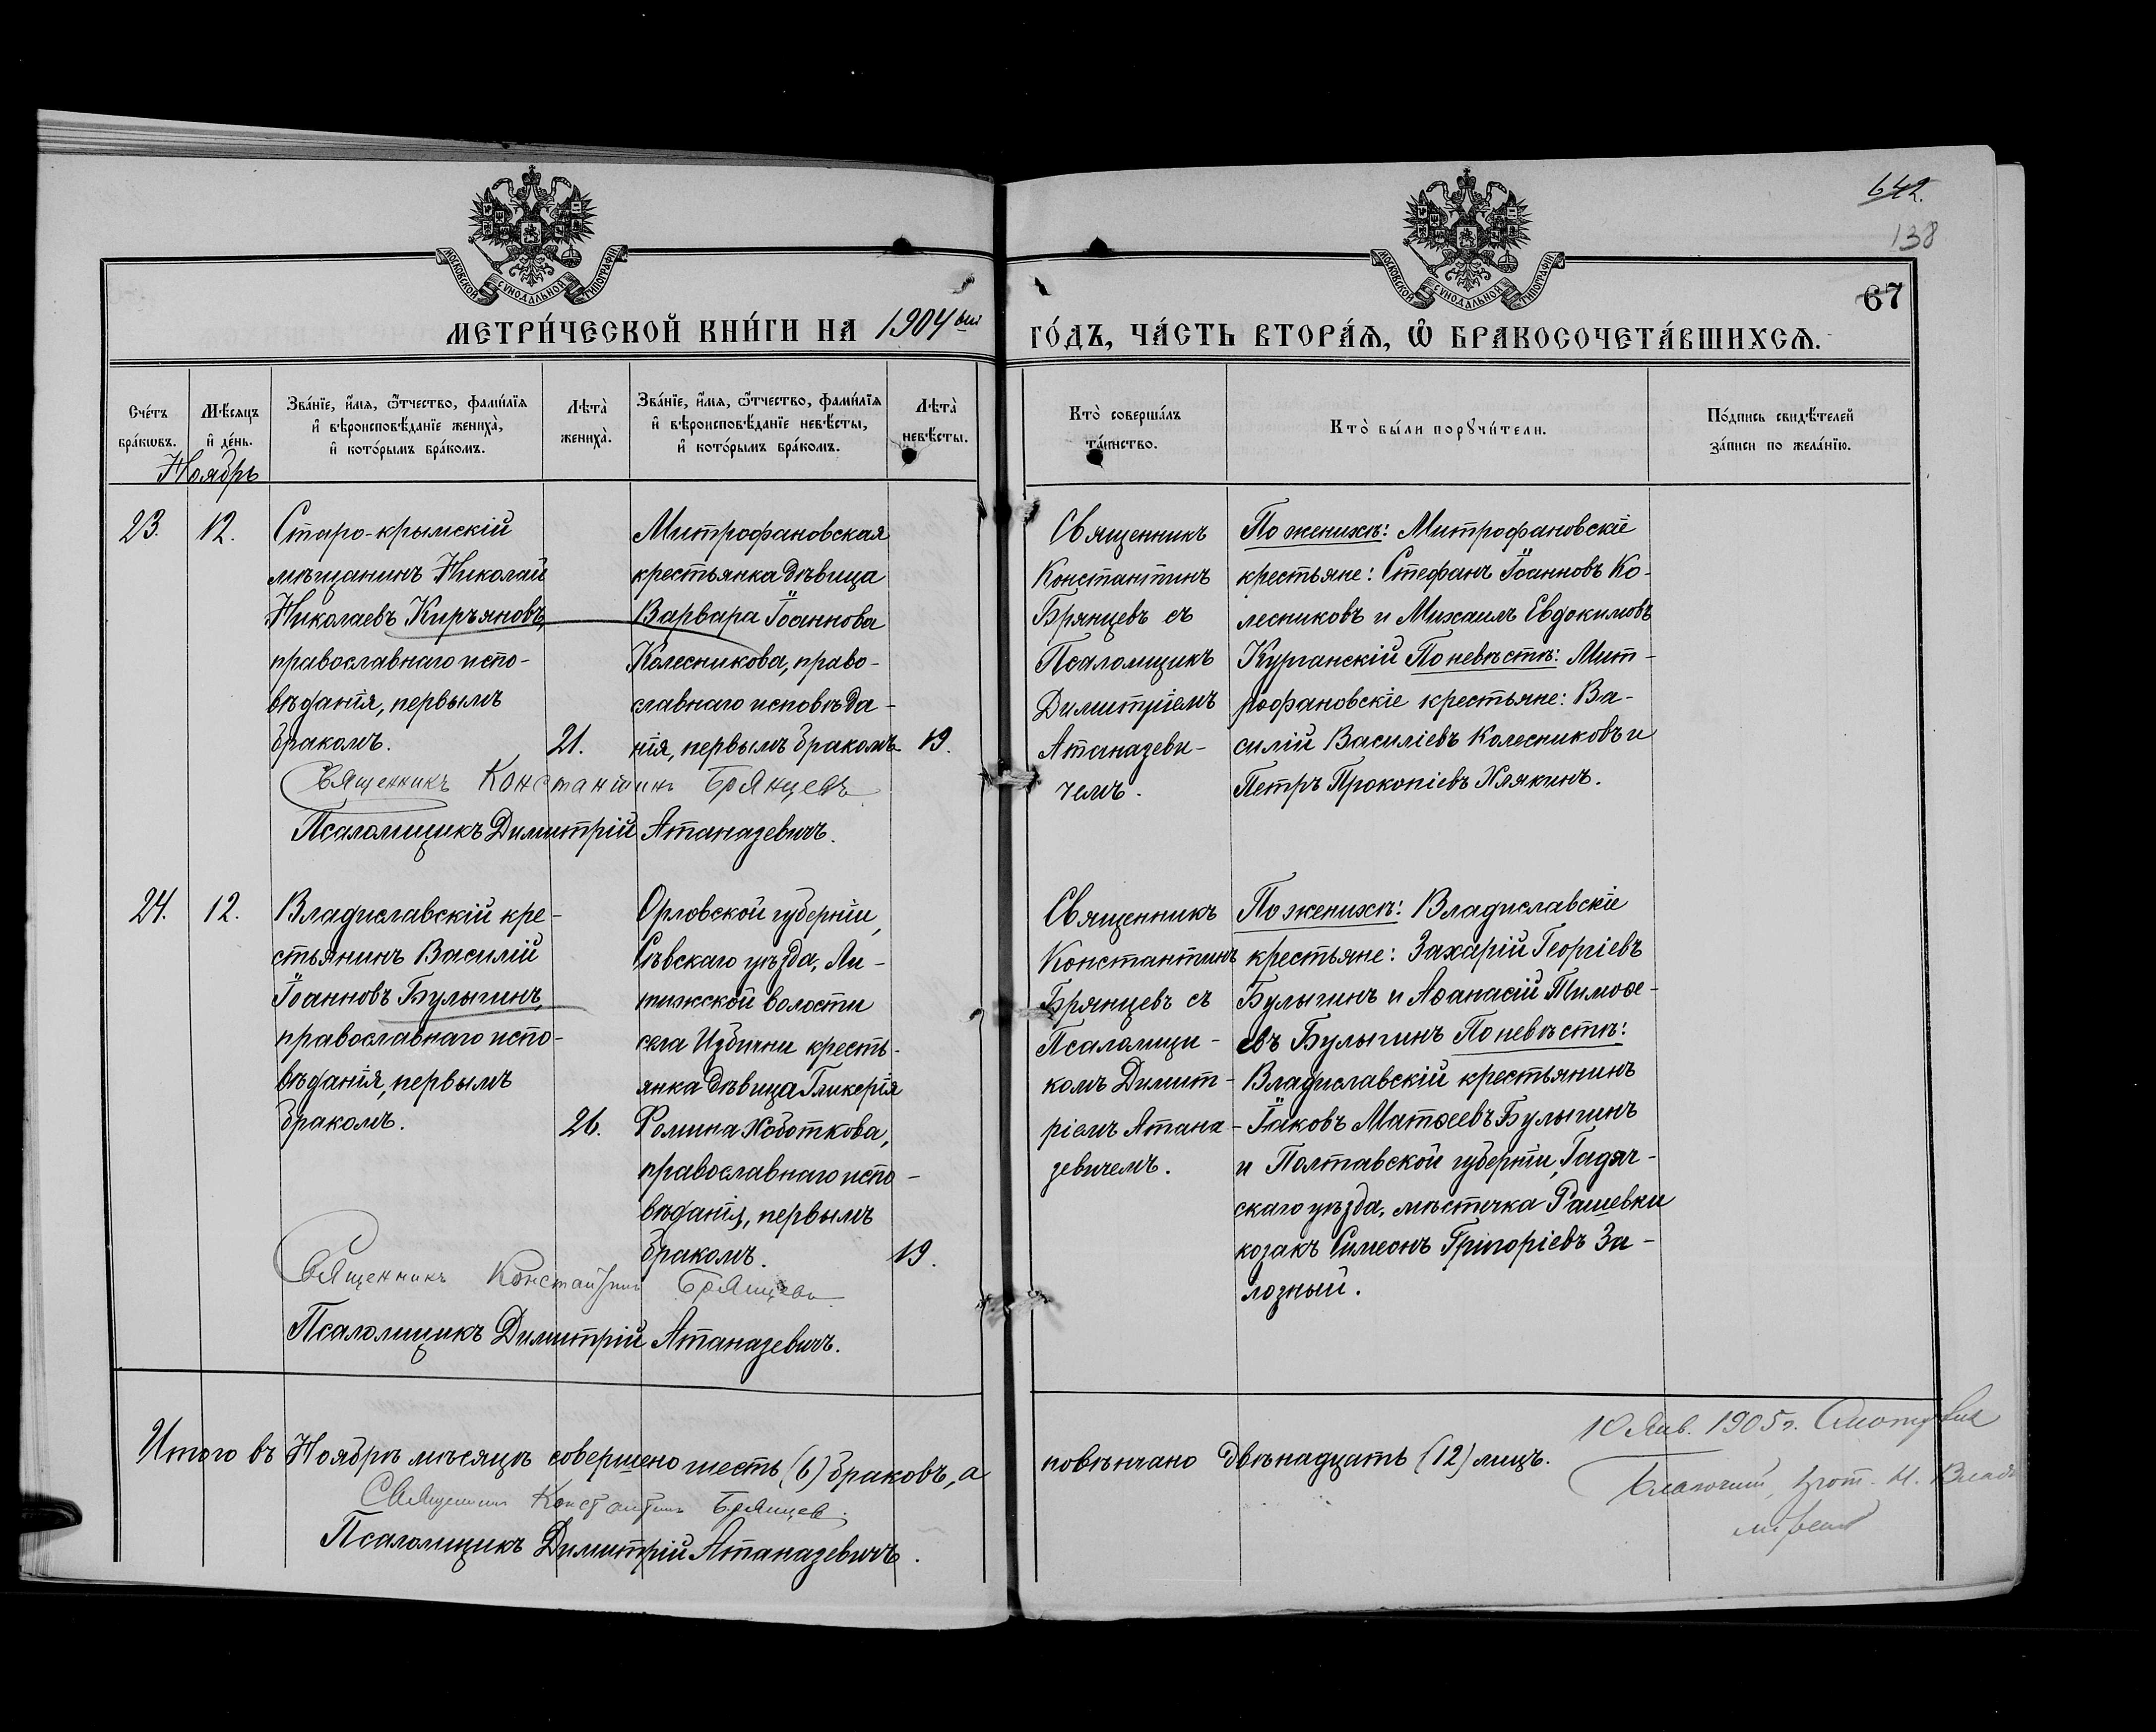 642.
138
67
МОСКОВСКОЙ СѴНОДАЛЬНОЙ ТИПОГРАФІИ
МОСКОВСКОЙ СѴНОДАЛЬНОЙ ТИПОГРАФІИ
МЕТРИ́ЧЕСКОЙ КНИ́ГИ НА 1904 ый
ГО́ДЪ, ЧА́СТЬ ВТОРА́Ѧ, Ѽ БРАКОСОЧЕТА́ВШИХСѦ.
Сче́тъ бра́кωвъ.
Мѣ́сѧцъ и҆ де́нь.
Зва́нїе, и҆́мѧ, ѻ҆́тчество, фами́лїѧ
и҆ вѣроисповѣ́данїе жениха̀,
и҆ кото́рымъ бра́комъ.
Лѣта̀ жениха̀.
Зва́нїе, и҆́мѧ, ѻ҆́тчество, фами́лїѧ
и҆ вѣроисповѣ́данїе невѣ́сты,
и҆ кото́рымъ бра́комъ.
Лѣта̀ невѣ́сты.
Кто̀ соверша́лъ та́инство.
Кто̀ бы́ли порꙋчи́тели.
По́дпись свидѣ́телей
за́писи по жела́нїю.
Ноябрь
23.
12.
Старо-крымскій
мѣщанинъ Николай
Николаевъ Киръяновъ,
православнаго испо-
вѣданія, первымъ
бракомъ.
21.
Митрофановская
крестьянка дѣвица
Варвара Іоаннова
Колесникова, право-
славнаго исповѣда-
нія, первымъ бракомъ
19.
Священникъ
Константинъ
Брянцевъ съ
Псаломщикъ
Димитріемъ
Атаназеви-
чемъ.
По женихѣ: Митрофановскіе
крестьяне: Стефанъ Іоанновъ Ко-
лесниковъ и Михаилъ Евдокимовъ
Курганскій По невѣстѣ: Мит-
рофановскіе крестьяне: Ва-
силій Василіевъ Колесниковъ и
Петръ Прокопіевъ Хлякинъ.
Священникъ Константинъ Брянцевъ
Псаломщикъ Димитрій Атаназевичъ.
24.
12.
Владиславскій кре-
стьянинъ Василій
Іоанновъ Булыгинъ,
православнаго испо-
вѣданія, первымъ
бракомъ.
26.
Орловской губерніи,
Сѣвскаго уѣзда, Ли-
тижской волости
села Избични кресть-
янка дѣвица Гликерія
Ѳомина Хоботкова,
православнаго испо-
вѣданія, первымъ
бракомъ.
19.
Священникъ
Константинъ
Брянцевъ съ
Псаломщи-
комъ Димит-
ріемъ Атана-
зевичемъ.
По женихѣ: Владиславскіе
крестьяне: Захарій Георгіевъ
Булыгинъ и Аѳанасій Тимоѳе-
евъ Булыгинъ По невѣстѣ:
Владиславскій крестьянинъ
Іаковъ Матѳеевъ Булыгинъ
и Полтавской губерніи, Гадяч-
скаго уѣзда, мѣстечка Рашевки
козакъ Симеонъ Григоріевъ За-
лозный.
Священникъ Константинъ Брянцевъ
Псаломщикъ Димитрій Атаназевичъ.
Итого въ Ноябрѣ мѣсяцѣ совершено шесть (6) браковъ, а
повѣнчано двѣнадцать (12) лицъ.
Священникъ Константинъ Брянцевъ
Псаломщикъ Димитрій Атаназевичъ.
10 Янв. 1905 г.